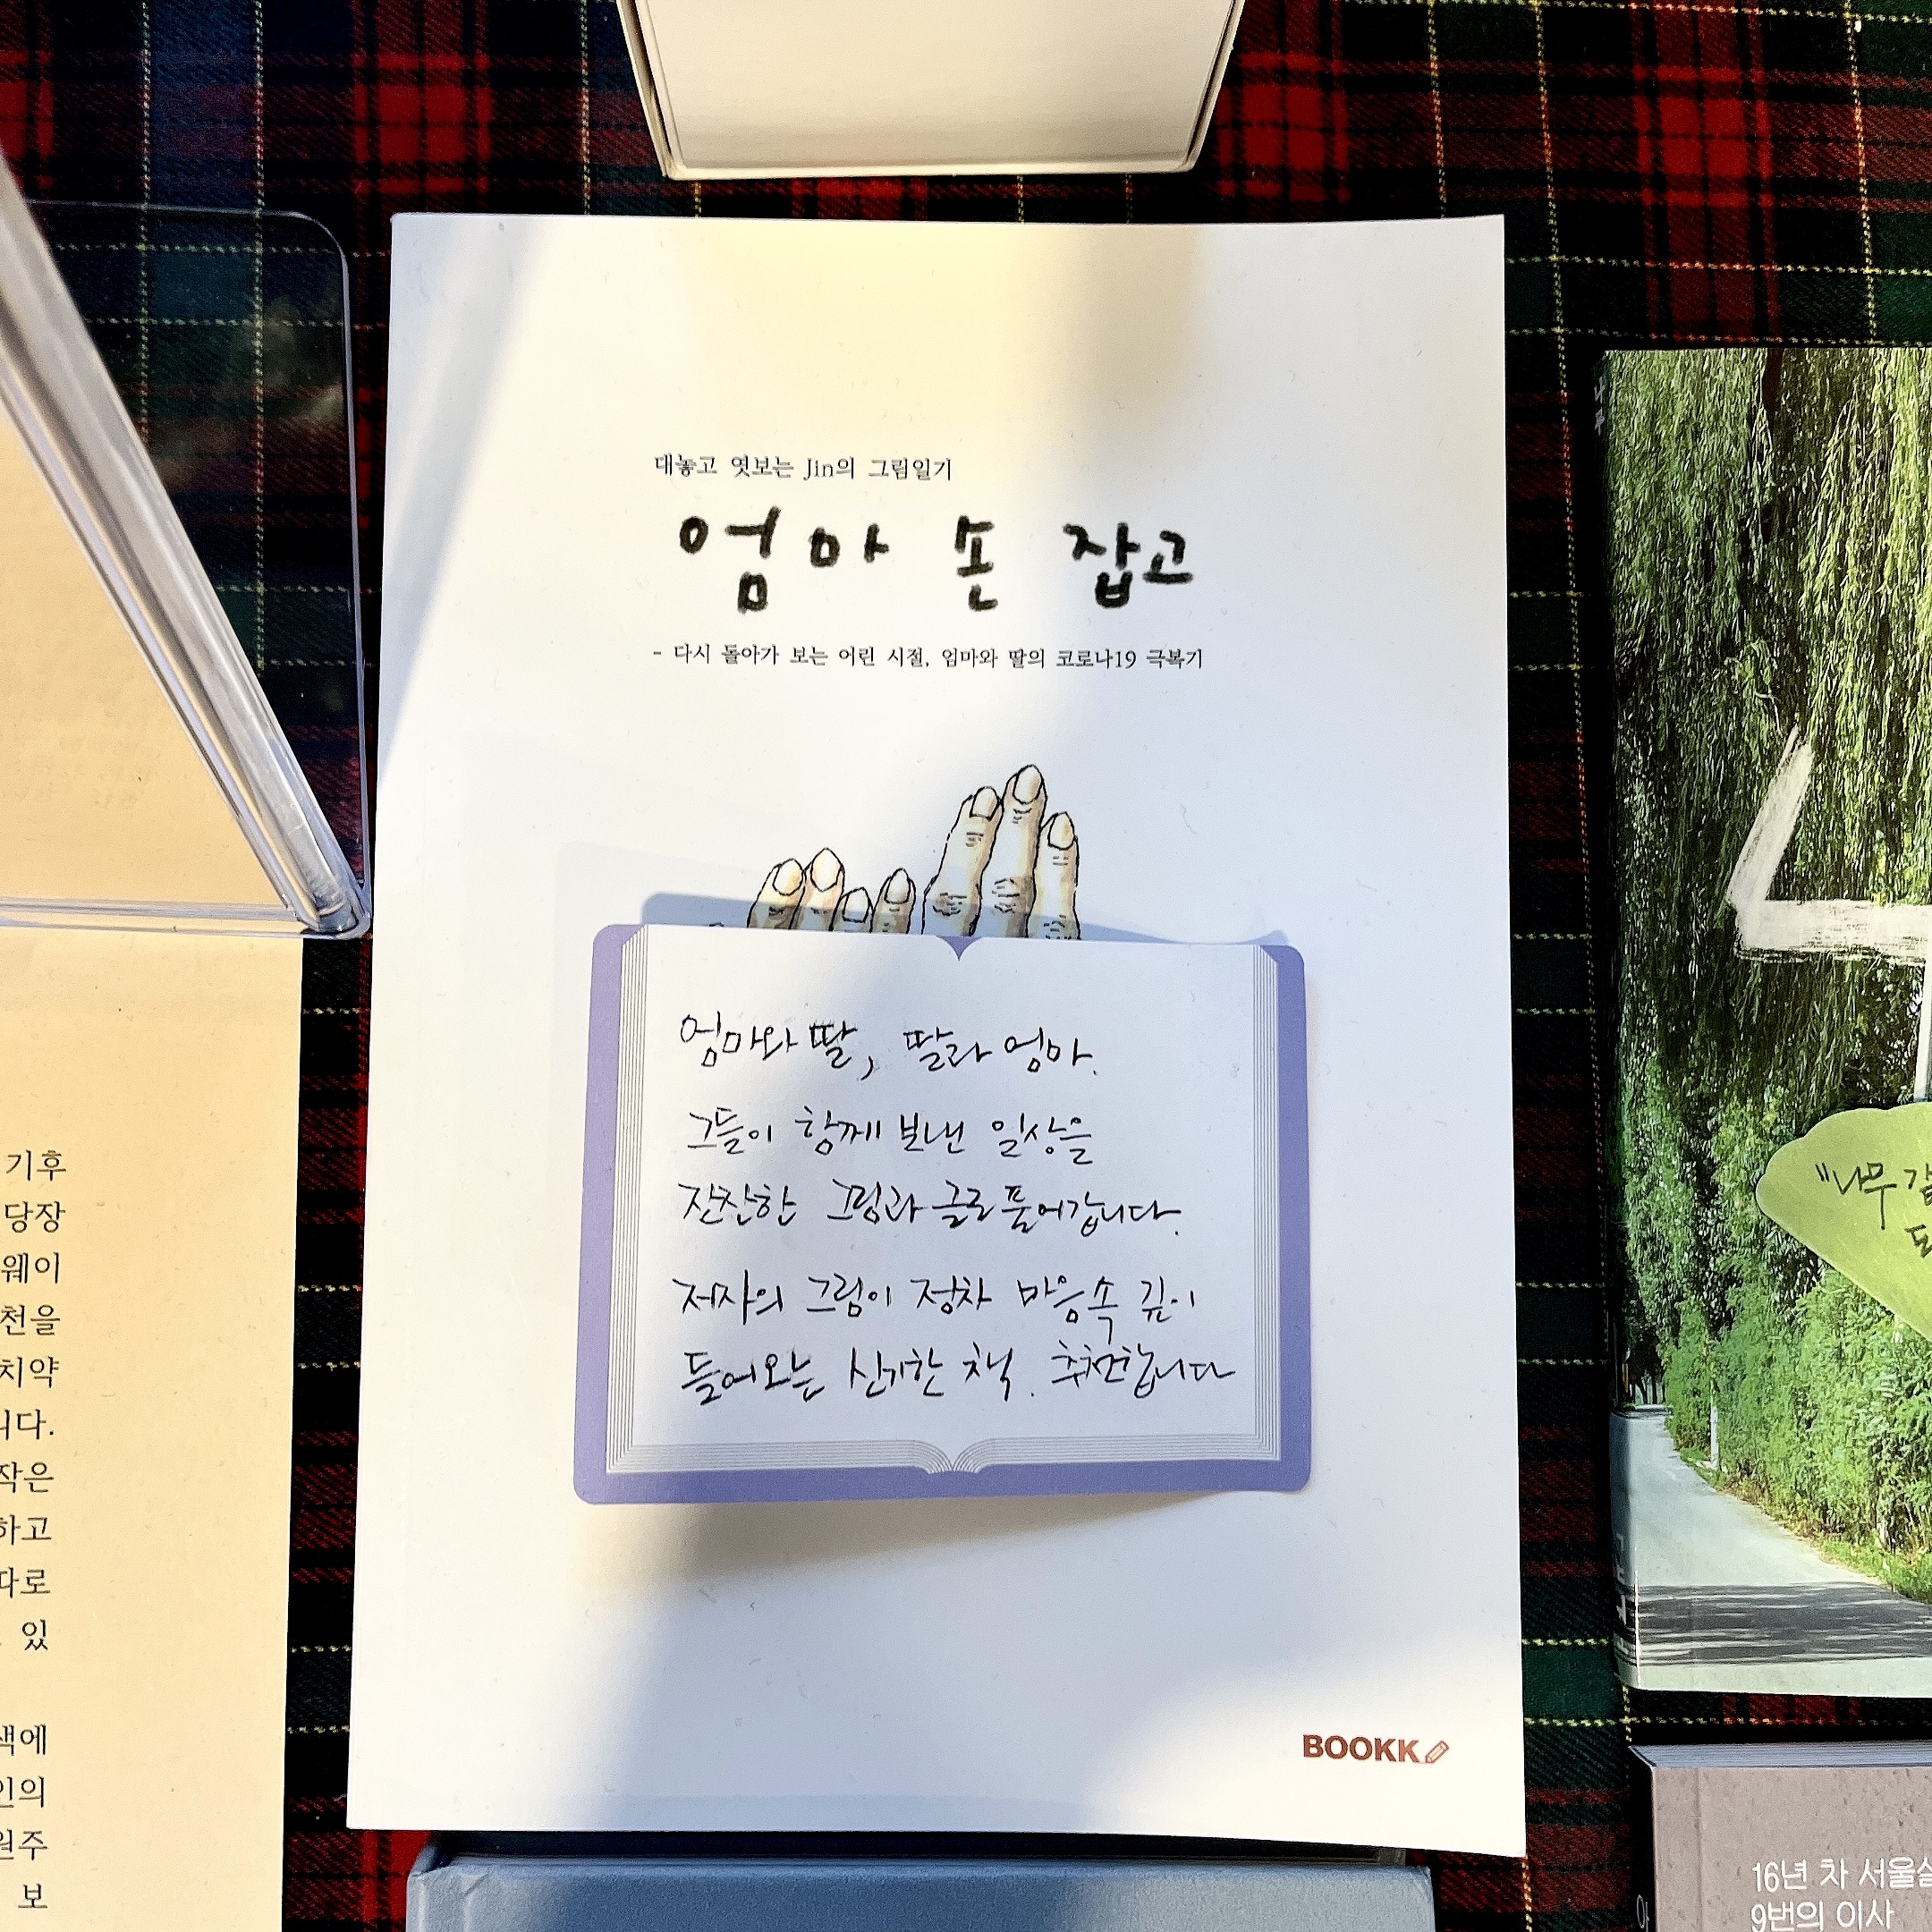 대놓고 엿보는 Jin의 그림일기
엄마 손 잡고
- 다시 돌아가 보는 어린 시절, 엄마와 딸의 코로나19 극복기
엄마와 딸, 딸과 엄마.
그들이 함께 보낸 일상을
잔잔한 그림과 글로 풀어갑니다.
저자의 그림이 점차 마음속 깊이
들어오는 신기한 책. 추천합니다
BOOKK
기후
당장
웨이
천을
치약
니다.
작은
하고
따로
있
색에
인의
원주
보
"나무
16년 차 서울살
9번의 이사